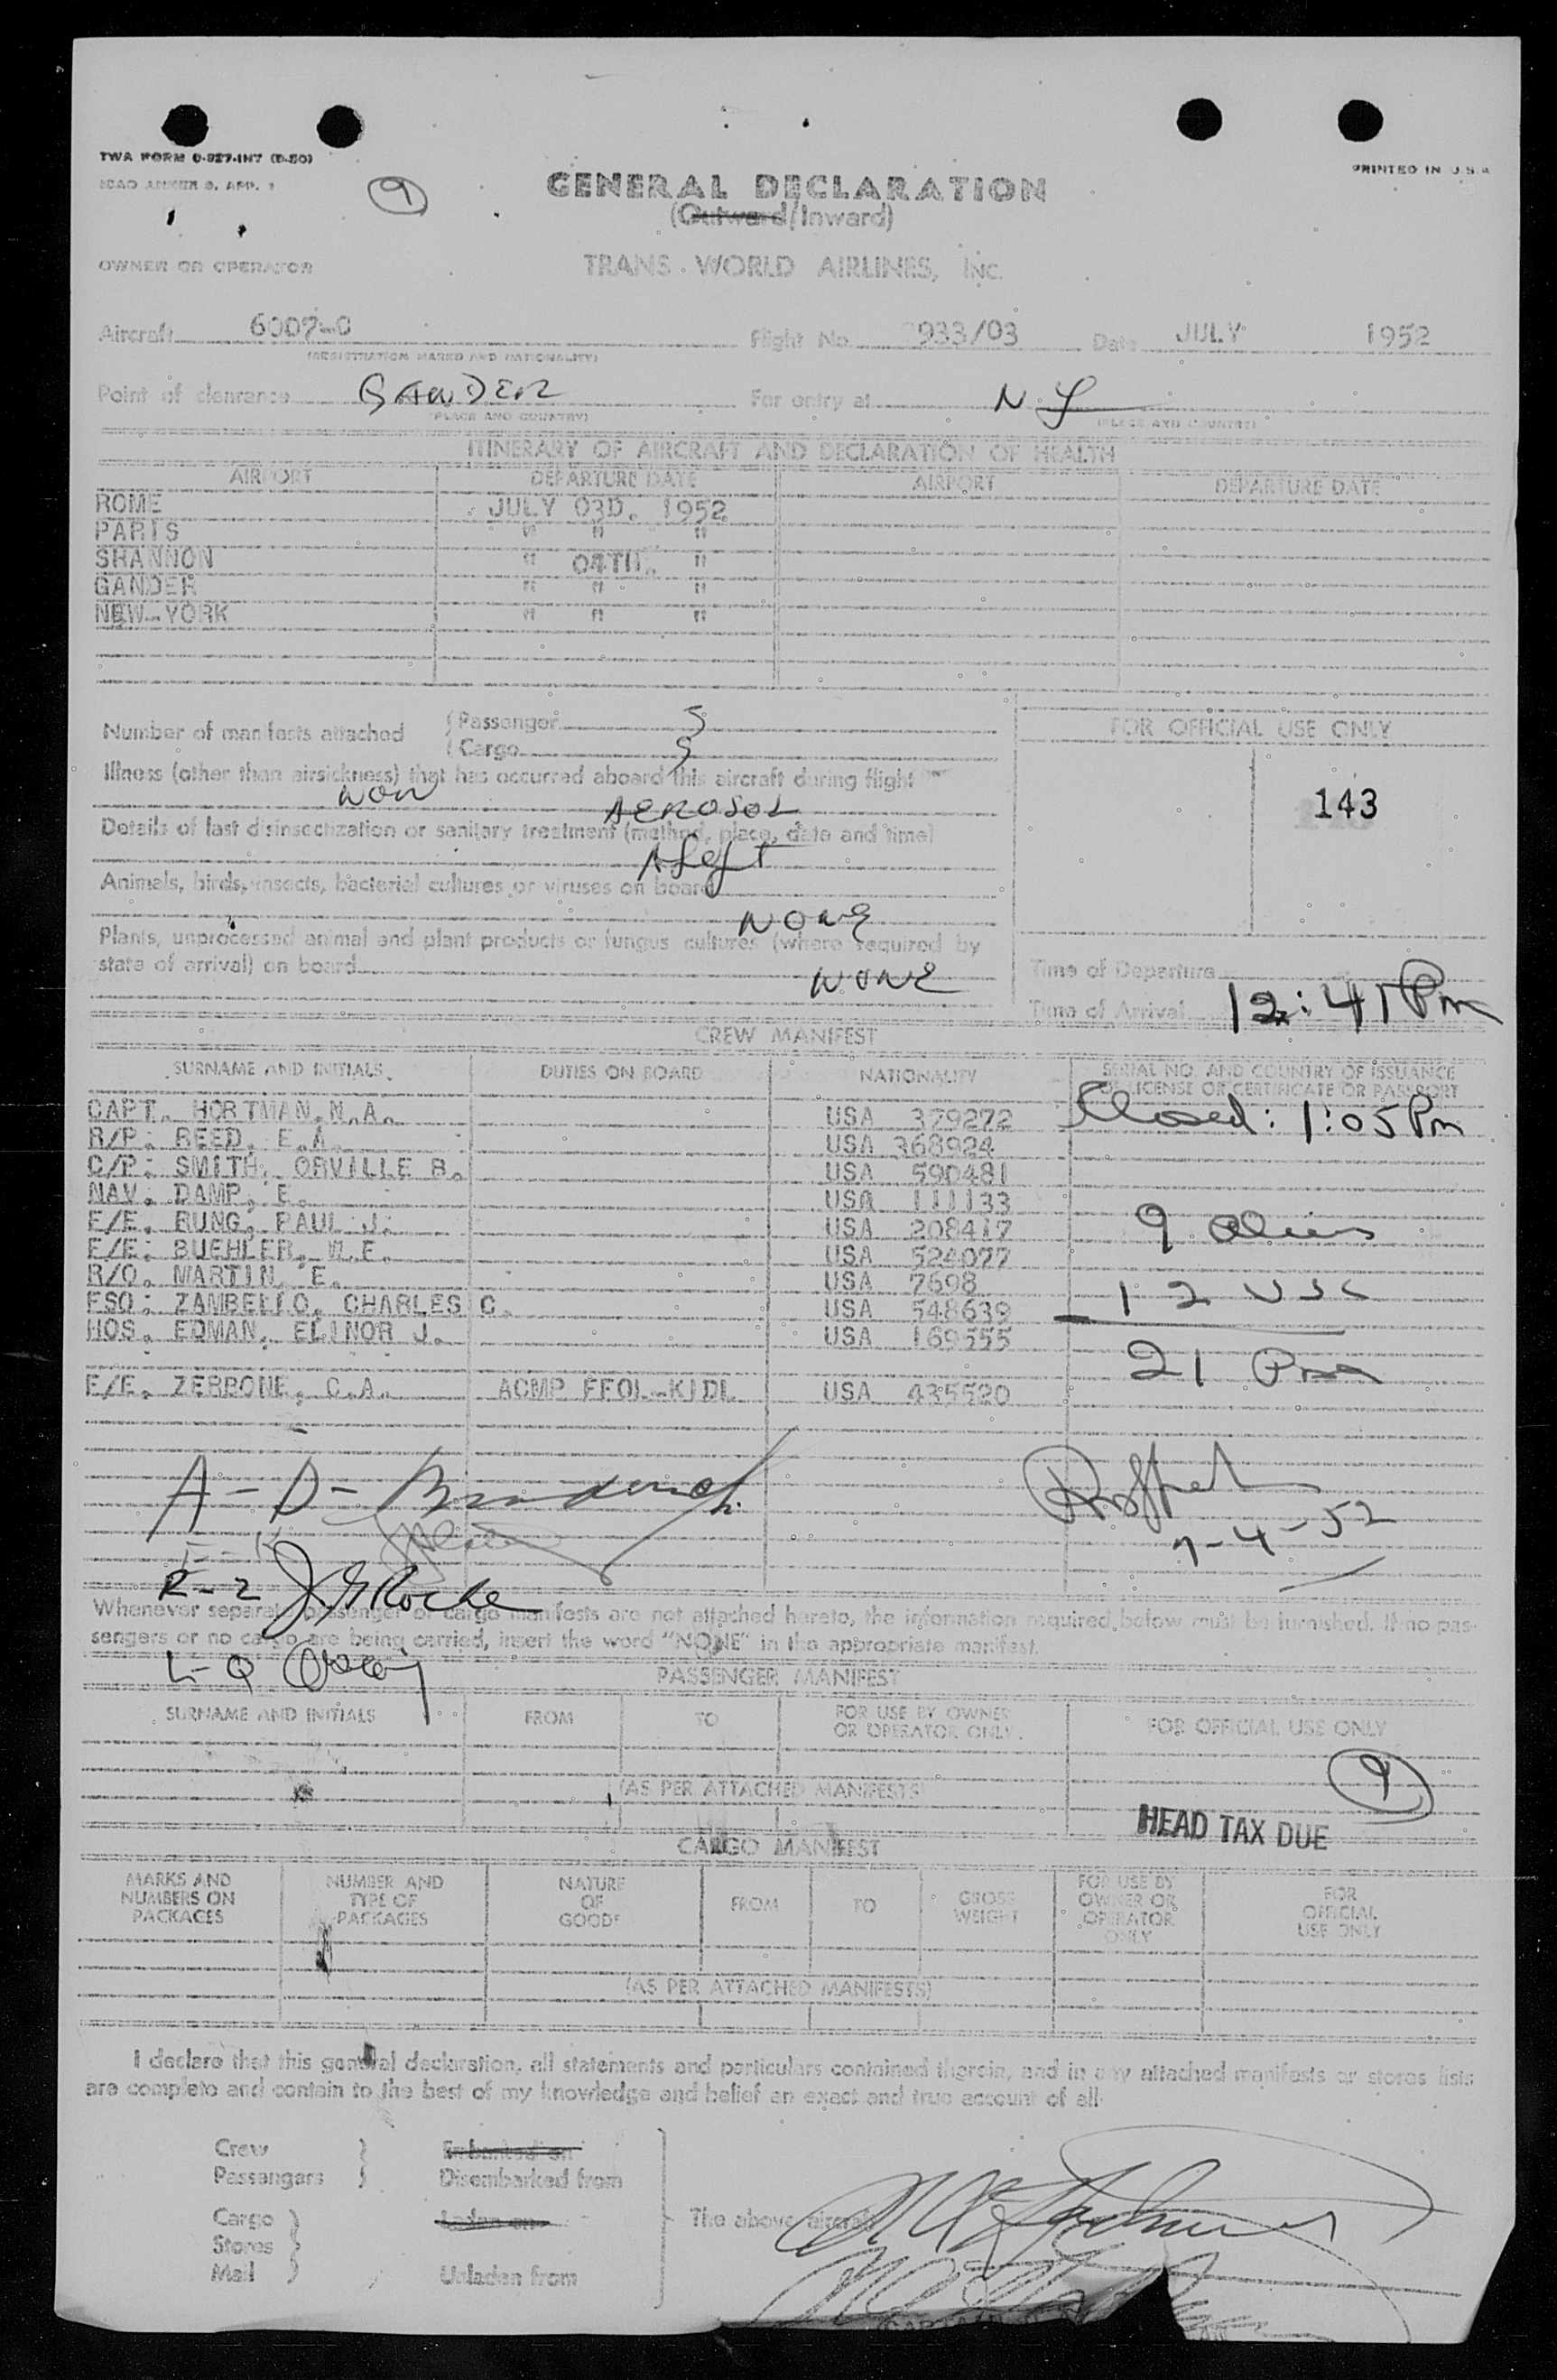 TWA FORM 0-927-INT (8-50)
ICAO ANNEX 9, APP. 1
PRINTED IN U.S.A
9
GENERAL DECLARATION
(Outward/Inward)
OWNER OR OPERATOR TRANS WORLD AIRLINES, INC.
Aircraft 6007-C Flight No. 933/03 Date JULY 1952
(REGISTRATION MARKS AND NATIONALITY)
Point of clearance GANDER For entry at N.Y
(PLACE AND COUNTRY) (PLACE AND COUNTRY)
ITINERARY OF AIRCRAFT AND DECLARATION OF HEALTH
AIRPORT DEPARTURE DATE AIRPORT DEPARTURE DATE
ROME JULY 03D. 1952
PARIS " " "
SHANNON " 04TH. "
GANDER " " "
NEW-YORK " " "
Number of manifests attached (Passenger 5
(Cargo 5
FOR OFFICIAL USE ONLY
143
Illness (other than airsickness) that has occurred aboard this aircraft during flight
AEROSOL
Details of last disinsectization or sanitary treatment (method, place, date and time)
Animals, birds, insects, bacterial cultures or viruses on board
NONE
Plants, unprocessed animal and plant products or fungus cultures (where required by
state of arrival) on board
NONE
Time of Departure
Time of Arrival 12:41 Pm
CREW MANIFEST
SURNAME AND INITIALS DUTIES ON BOARD NATIONALITY SERIAL NO. AND COUNTRY OF ISSUANCE
OF LICENSE OR CERTIFICATE OR PASSPORT
CAPT. HORTMAN.N.A. USA 379272 Closed: 1:05 Pm
R/P. REED. E.A. USA 368924
C/P. SMITH. ORVILLE B. USA 590481
NAV. DAMP. E. USA 111133
F/E. RUNG. PAUL J. USA 208417 9 Aliens
F/E. BUEHLER. W.E. USA 524077
R/O. MARTIN. E. USA 7698 12 USC
FSO. ZAMBELLO. CHARLES C. USA 548639
HOS. EDMAN. ELINOR J. USA 169555 21 Pax
F/E. ZERBONE. C.A. ACMP FFOL-KIDL USA 435520
A-D-
7-4-52
R-2 J. Roche
Whenever separate passenger or cargo manifests are not attached hereto, the information required below must be furnished. If no pas-
sengers or no cargo are being carried, insert the word "NONE" in the appropriate manifest.
L-Q
PASSENGER MANIFEST
SURNAME AND INITIALS FROM TO FOR USE BY OWNER
OR OPERATOR ONLY FOR OFFICIAL USE ONLY
9
(AS PER ATTACHED MANIFESTS)
HEAD TAX DUE
CARGO MANIFEST
MARKS AND
NUMBERS ON
PACKAGES
NUMBER AND
TYPE OF
PACKAGES
NATURE
OF
GOODS
FROM
TO
GROSS
WEIGHT
FOR USE BY
OWNER OR
OPERATOR
ONLY
FOR
OFFICIAL
USE ONLY
(AS PER ATTACHED MANIFESTS)
I declare that this general declaration, all statements and particulars contained therein, and in any attached manifests or stores lists
are complete and contain to the best of my knowledge and belief an exact and true account of all
Crew Embarked on
Passengers Disembarked from
Cargo Laden on The above aircraft
Stores
Mail Unladen from